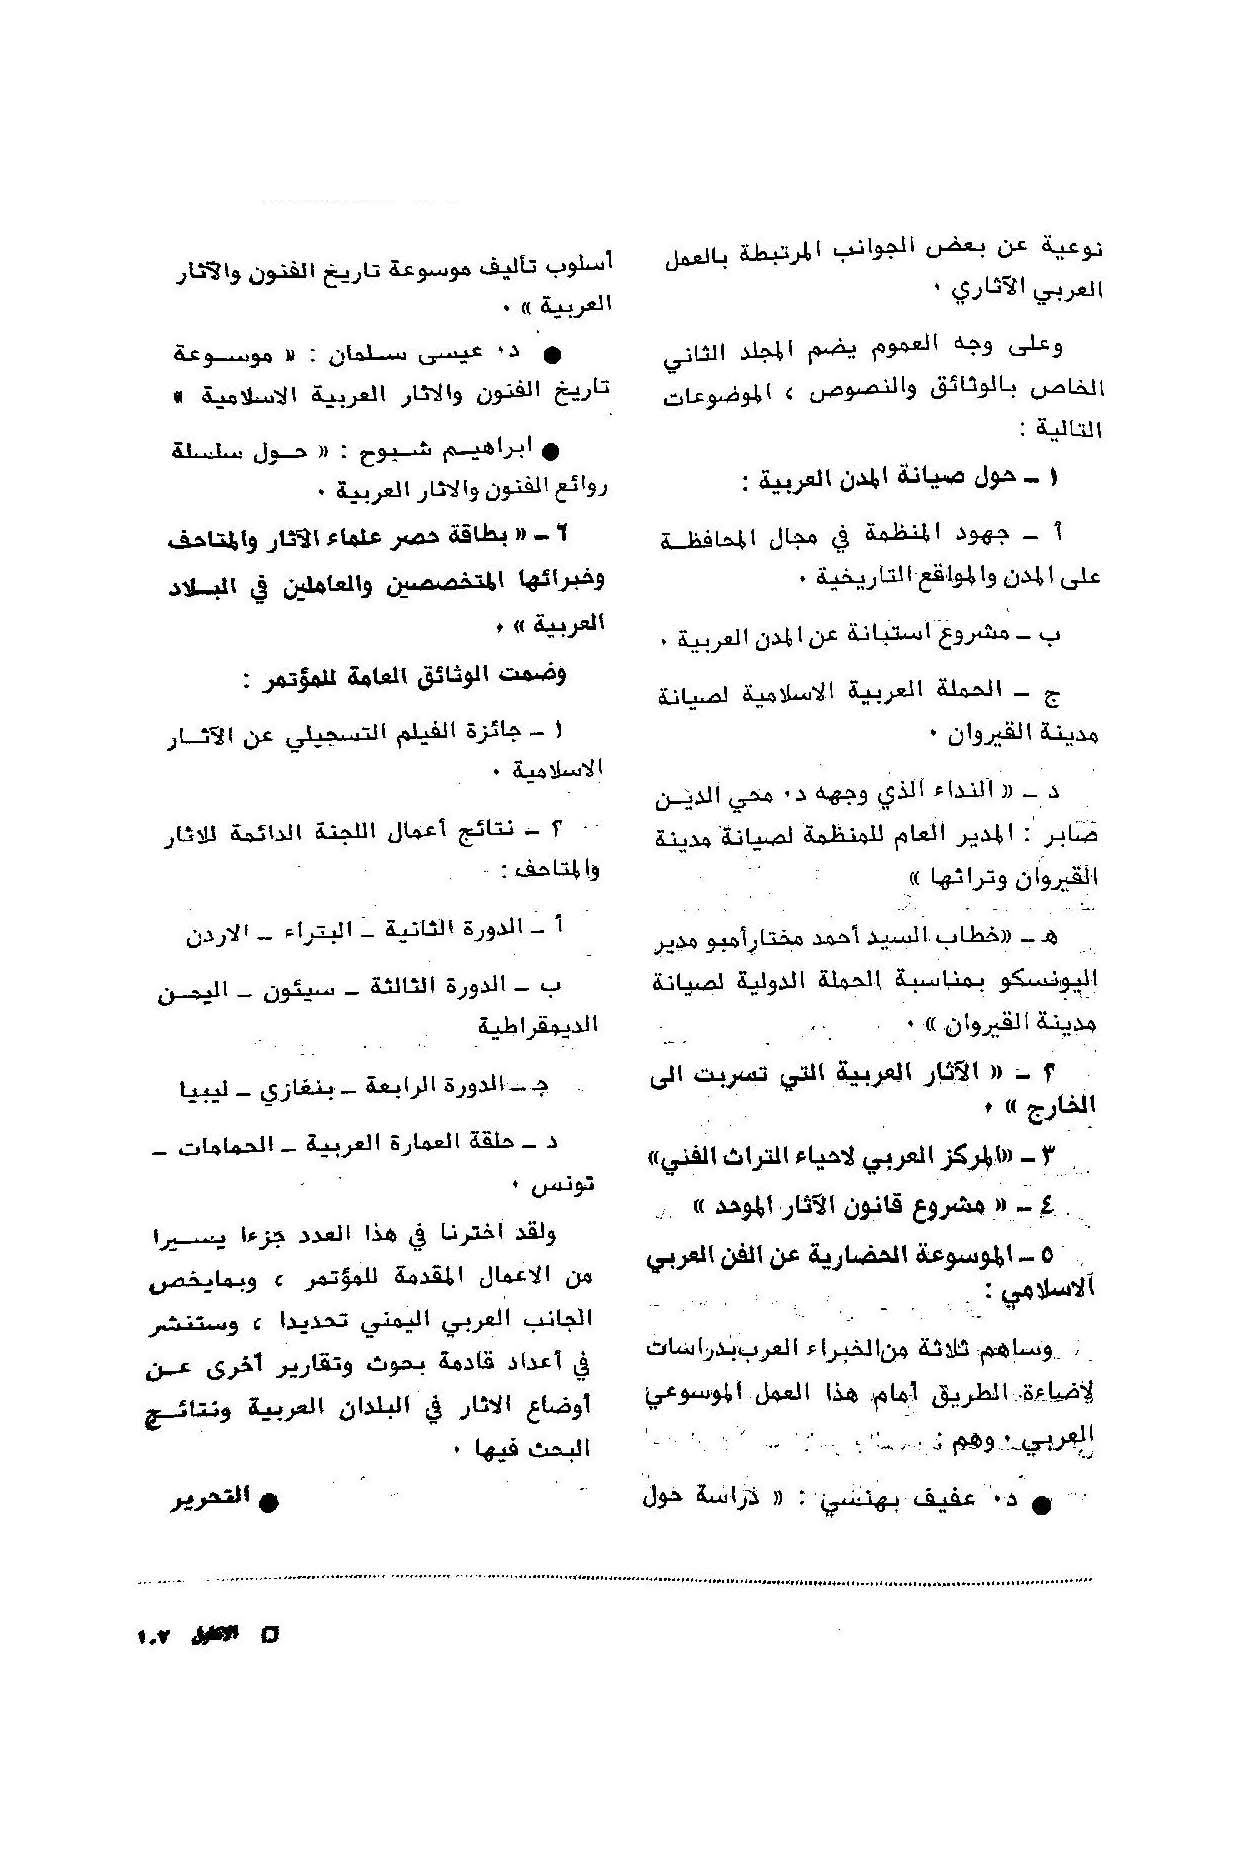 نوعية عن بعض الجوانب المرتبطة بالعمل
العربي الآثاري ٠
وعلى وجه العموم يضم المجلد الثاني
الخاص بالوثائق والنصوص ، الموضوعات
التالية :
١ ـ حول صيانة المدن العربية :
أ ـ جهود المنظمة في مجال المحافظـة
على المدن والمواقع التاريخية ٠
ب ـ مشروع استبانة عن المدن العربية ٠
ج ـ الحملة العربية الاسلامية لصيانة
مدينة القيروان ٠
د ـ « النداء الذي وجهه د٠ محي الديـن
صابر : المدير العام للمنظمة لصيانة مدينة
القيروان وتراثها »
هـ ـ «خطاب السيد أحمد مختار أمبو مدير
اليونسكو بمناسبة الحملة الدولية لصيانة
مدينة القيروان » ٠
٢ ـ « الآثار العربية التي تسربت الى
الخارج » ٠
٣ ـ «المركز العربي لاحياء التراث الفني»
٤ ـ « مشروع قانون الآثار الموحد »
٥ ـ الموسوعة الحضارية عن الفن العربي
الاسلامي :
وساهم ثلاثة من الخبراء العرب بدراسات
لاضاءة الطريق أمام هذا العمل الموسوعي
العربي ٠ وهم :
● د٠ عفيف بهنسي : « دراسة حول
أسلوب تأليف موسوعة تاريخ الفنون والآثار
العربية » ٠
● د٠ عيسى سـلمان : « موسـوعة
تاريخ الفنون والاثار العربية الاسلامية »
● ابراهيـم شـبوح : « حـول سلسلة
روائع الفنون والاثار العربية ٠
٦ ـ « بطاقة حصر علماء الآثار والمتاحف
وخبرائها المتخصصين والعاملين في البـلاد
العربية » ٠
وضمت الوثائق العامة للمؤتمر :
١ ـ جائزة الفيلم التسجيلي عن الآثـار
الاسلامية ٠
٢ ـ نتائج أعمال اللجنة الدائمة للاثار
والمتاحف :
أ ـ الدورة الثانية ـ البتراء ـ الاردن
ب ـ الدورة الثالثة ـ سيئون ـ اليمـن
الديمقراطية
جـ ـ الدورة الرابعة ـ بنغازي ـ ليبيا
د ـ حلقة العمارة العربية ـ الحمامات ـ
تونس ٠
ولقد اخترنا في هذا العدد جزءا يسـيرا
من الاعمال المقدمة للمؤتمر ، وبمايخص
الجانب العربي اليمني تحديدا ، وستنشر
في أعداد قادمة بحوث وتقارير أخرى عـن
أوضاع الاثار في البلدان العربية ونتائـج
البحث فيها ٠
● التحرير
الاكليل ١٠٧